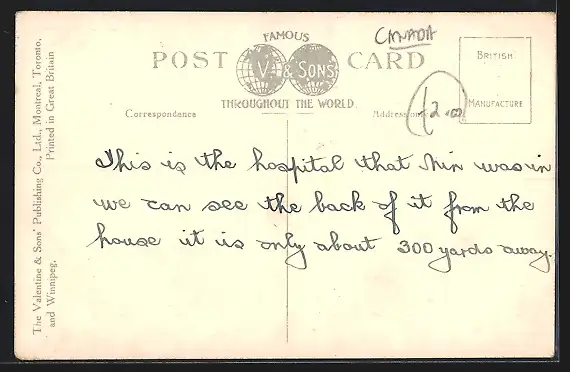 FAMOUS
CANADA
POST V. & SONS CARD
THROUGHOUT THE WORLD.
BRITISH
MANUFACTURE
Correspondence
Address only
£2.00
This is the hospital that Min was in
we can see the back of it from the
house it is only about 300 yards away.
The Valentine & Sons' Publishing Co., Ltd., Montreal, Toronto,
and Winnipeg.
Printed in Great Britain